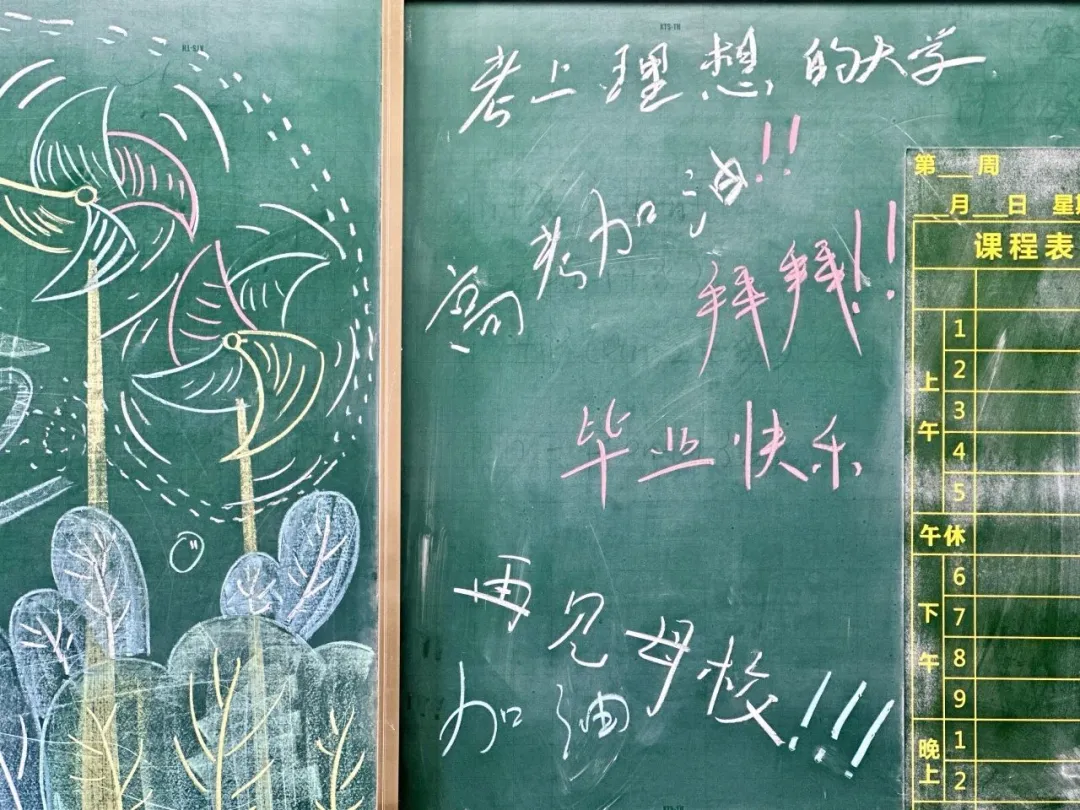 考上理想的大学
高考加油!!
拜拜!!
毕业快乐
再见母校!!!
加油
第 周
月 日 星期
课程表
上午
1
2
3
4
5
午休
下午
6
7
8
9
晚上
1
2